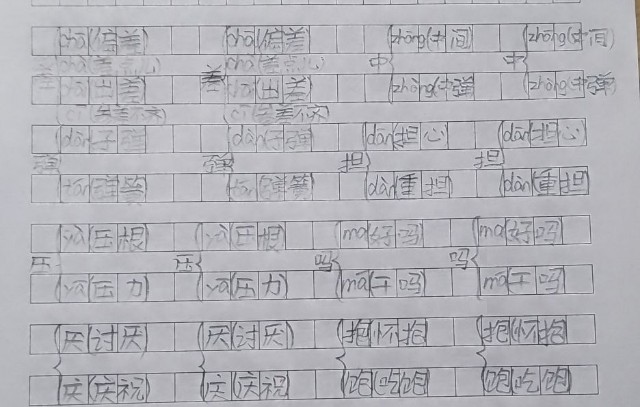 chā(偏差) chā(偏差) zhōng(中间) zhōng(中间)
差 chà(差点儿) 差 chà(差点儿) 中 中
chāi 出差 chāi 出差 zhòng(中弹 zhòng(中弹)
cī 参差不齐 cī 参差不齐
dàn 子弹 dàn 子弹 dān 担心 dān 担心
弹 弹 担 担
tán 弹簧 tán 弹簧 dàn 重担 dàn 重担
yà 压根 yà 压根 ma 好吗 ma 好吗
压 压 吗 吗
yā 压力) yā 压力 má 干吗 má 干吗
厌(讨厌 厌(讨厌) 抱(怀抱 抱(怀抱
庆(庆祝) 庆(庆祝 饱(吃饱 饱(吃饱